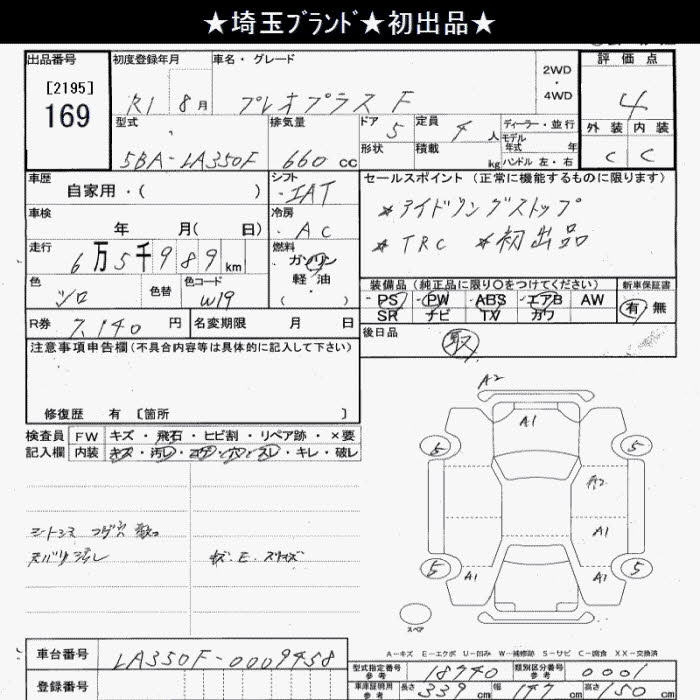 ★埼玉ﾌﾞﾗﾝﾄﾞ★初出品★
出品番号 初度登録年月 車名・グレード 2WD ・ 4WD 評価点
[2195]
169
R1 8月 プレオプラス F 4
型式 排気量 ドア 5 定員 4人 ディーラー・並行 外装 内装
モデル年式 年
5BA-LA350F 660cc 形状 積載 kg ハンドル 左・右 C C
車歴 シフト セールスポイント(正常に機能するものに限ります)
自家用・( ) IAT
＊アイドリングストップ
車検 冷房
年 月( 日) AC
＊TRC ＊初出品
走行 燃料
6万5千989km ガソリン
軽油
( )
色 色替 色コード
シロ W19
装備品(純正品に限り〇をつけてください) 新車保証書
PS・PW・ABS・エアB AW 有・無
SR ナビ TV カワ
R券 7,140円 名変期限 月 日
後日品
取
注意事項申告欄(不具合内容等は具体的に記入して下さい)
修復歴 有[箇所 ]
A2
A1
検査員 FW キズ・飛石・ヒビ割・リペア跡・×要
記入欄 内装 キズ・汚レ・コゲ・穴・スレ・キレ・破レ
5 5
A2
A1
5 5
A1 A2
スペア
A-キズ E-エクボ U-凹み W-補修跡 S-サビ C-腐食 XX-交換済
車台番号 LA350F-0009458
登録番号
型式指定番号 参考 18740 類別区分番号 参考 0001
車庫証明用 参考 長さ 339cm 幅 147cm 高さ 150cm